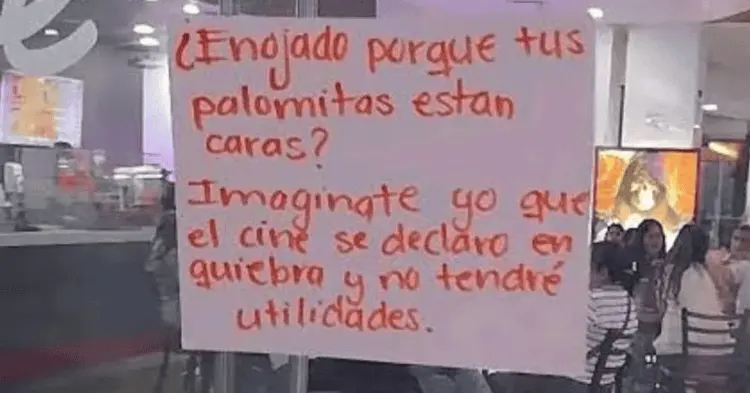 ¿Enojado porque tus
palomitas estan
caras?
Imaginate yo que
el cine se declaro en
quiebra y no tendré
utilidades.